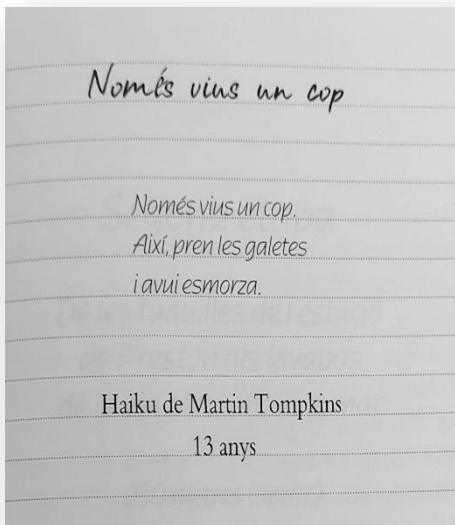 Només vius un cop
Només vius un cop.
Així, pren les galetes
i avui esmorza.
Haiku de Martin Tompkins
13 anys